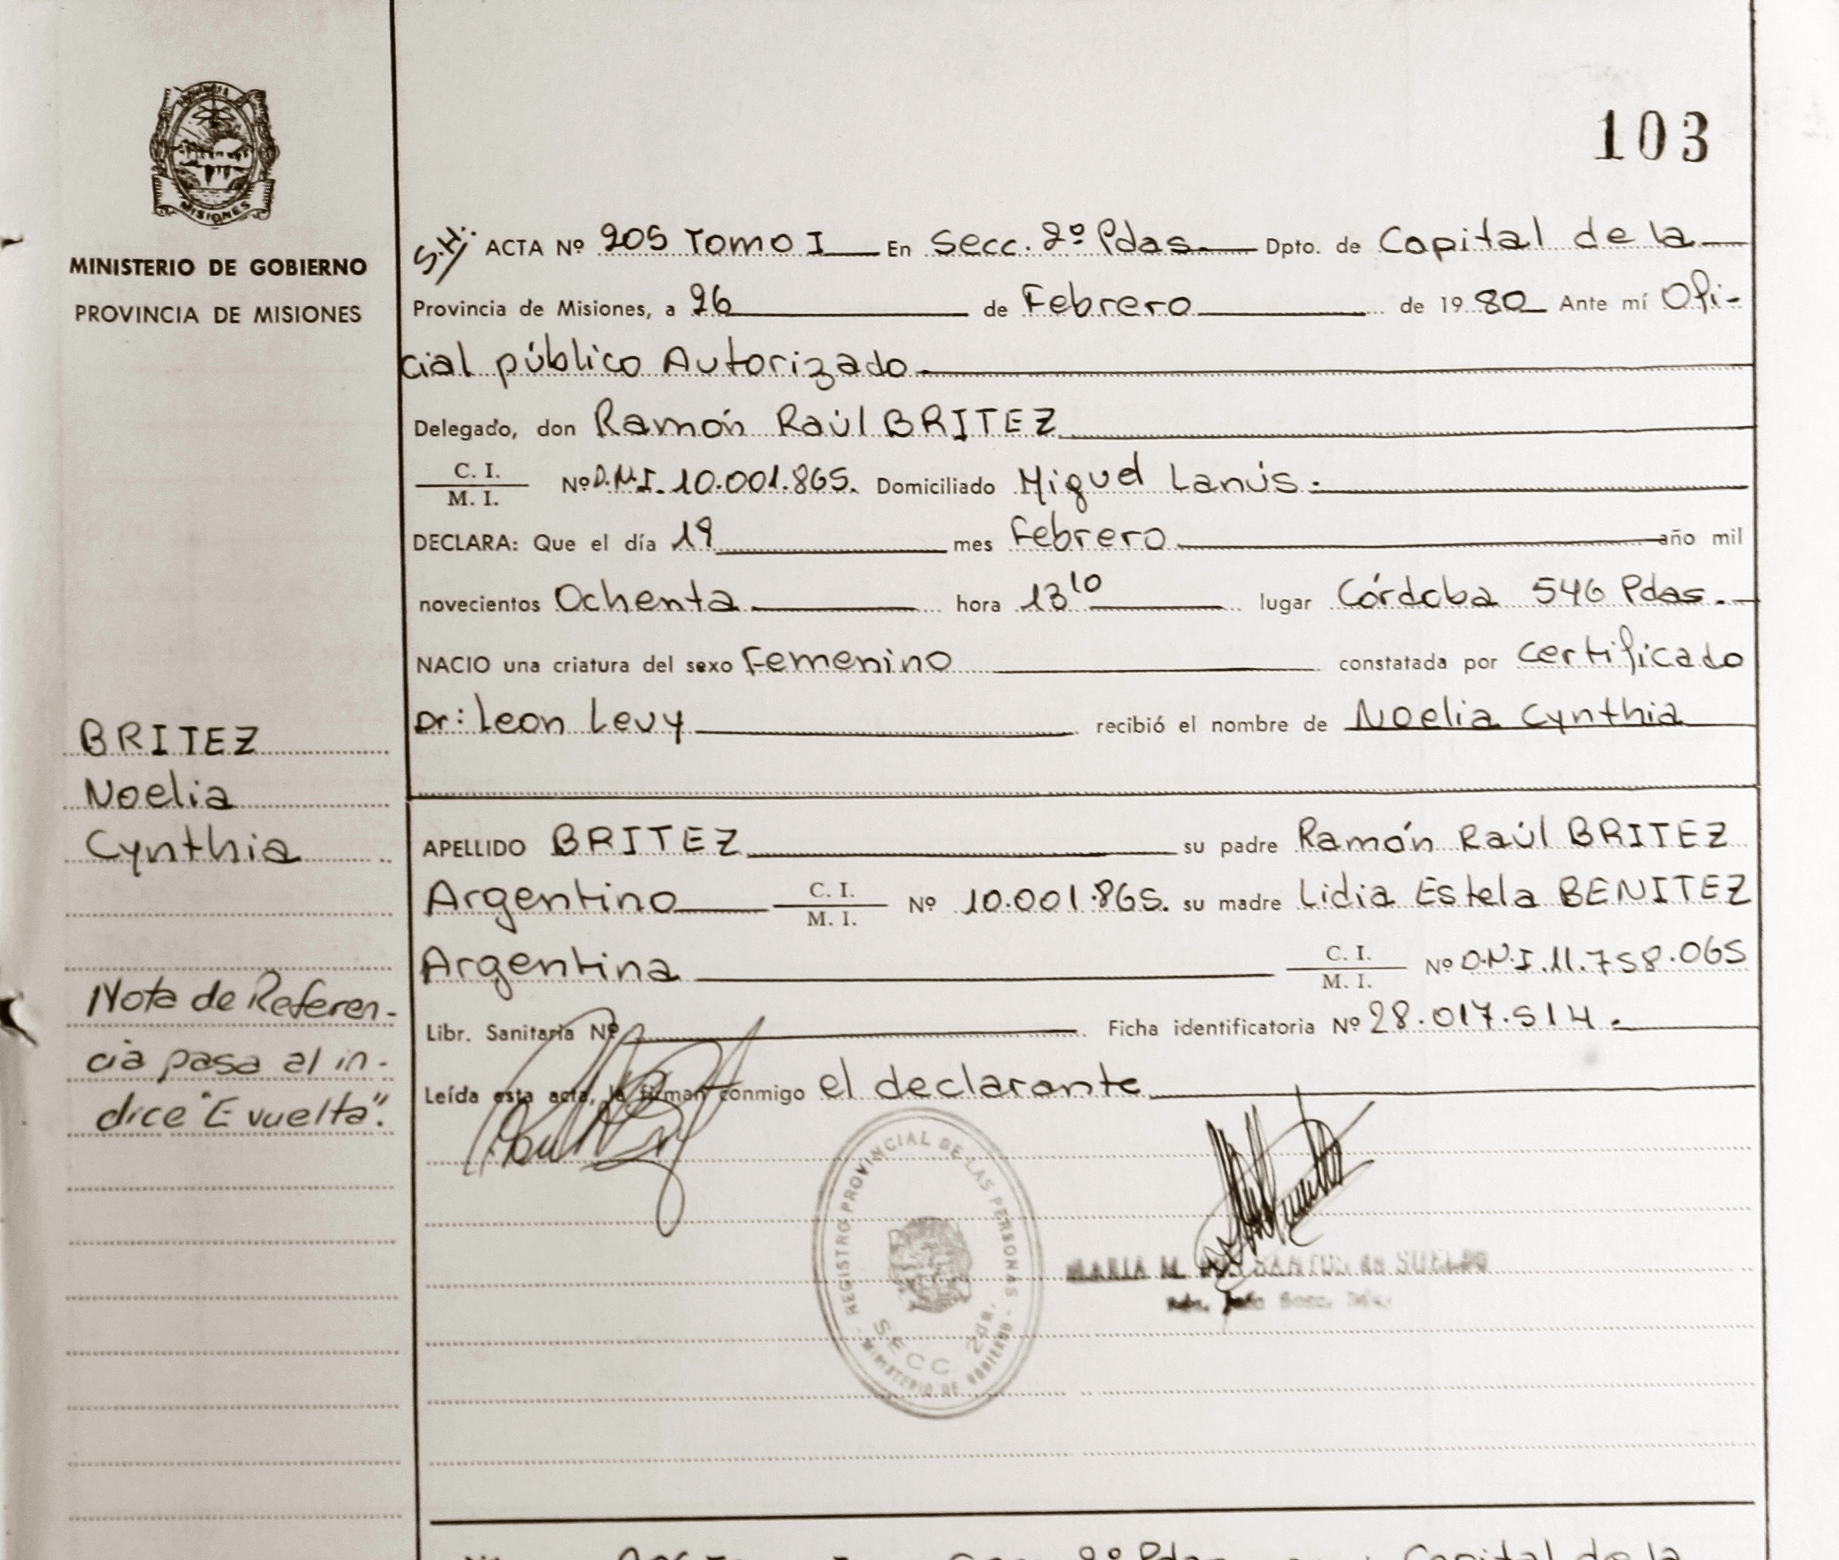 103
MISIONES
MINISTERIO DE GOBIERNO
PROVINCIA DE MISIONES
S.H. ACTA Nº 205 Tomo I En Secc. 2º Pdas. Dpto. de Capital de la
Provincia de Misiones, a 26 de Febrero de 1980 Ante mí Ofi-
cial público Autorizado
Delegado, don Ramón Raúl BRITEZ
C. I.
M. I. Nº D.N.I. 10.001.865. Domiciliado Miguel Lanús.
DECLARA: Que el día 19 mes Febrero año mil
novecientos Ochenta hora 13 10 lugar Córdoba 546 Pdas.
NACIO una criatura del sexo Femenino constatada por certificado
Dr: Leon Levy recibió el nombre de Noelia Cynthia
BRITEZ
Noelia
Cynthia
APELLIDO BRITEZ su padre Ramón Raúl BRITEZ
Argentino C. I.
M. I. Nº 10.001.865. su madre Lidia Estela BENITEZ
Argentina C. I.
M. I. Nº D.N.I. 11.758.065
Libr. Sanitaria Nº Ficha identificatoria Nº 28.017.514.
Leída esta acta, la firman conmigo el declarante
Nota de Referen-
cia pasa al in-
dice "E vuelta".
REGISTRO PROVINCIAL DE LAS PERSONAS
SECC 2da.
MINISTERIO DE GOBIERNO
MARIA M. SANTOS de SUELDO
Capital de la